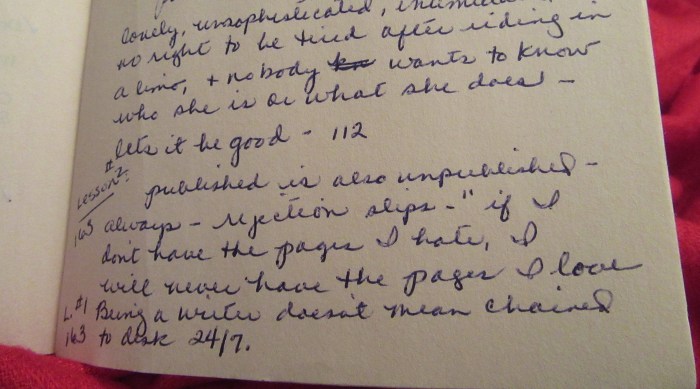 lonely, unsophisticated,
no right to be tired after riding in
a limo, + nobody wants to know
who she is or what she does -
lets it be good - 112
Lesson #2:
published is also unpublished -
163 always - rejection slips - " if I
don't have the pages I hate, I
will never have the pages I love
L. #1 Being a writer doesn't mean chained
163 to desk 24/7.